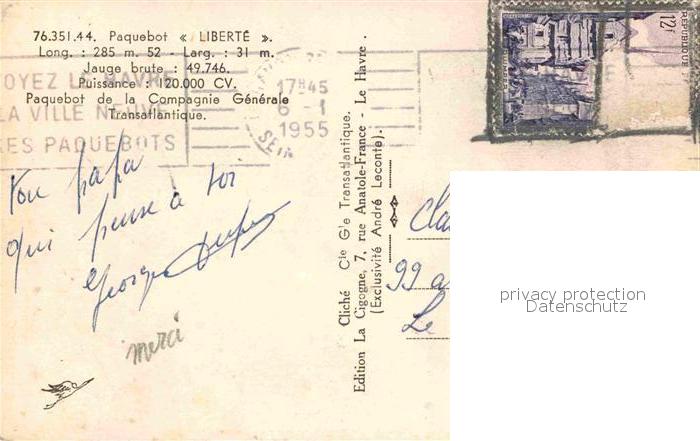 76.351.44. Paquebot « LIBERTÉ ».
Long. : 285 m. 52 - Larg. : 31 m.
Jauge brute : 49.746.
Puissance : 120.000 CV.
Paquebot de la Compagnie Générale
Transatlantique.
OYEZ LE HAVRE
LA VILLE NEUVE
SES PAQUEBOTS
17H45
6 - 1
1955
SEIN
12F
Ton papa
qui pense à toi
Georges
merci
Cliché Cie Gle Transatlantique.
Edition La Cigogne, 7, rue Anatole-France - Le Havre.
(Exclusivité André Leconte).
Cla
99 a
Le
privacy protection
Datenschutz